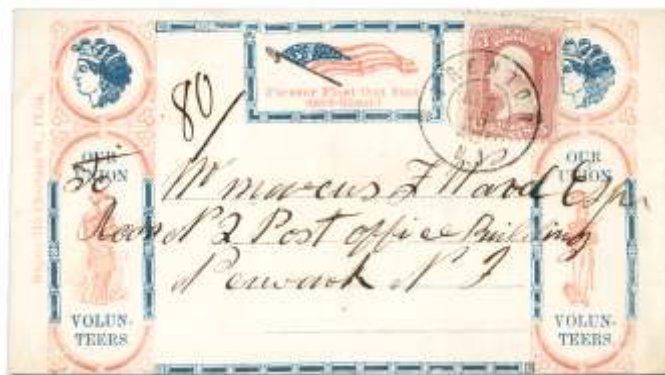 Forever Float that Stan-
dard-Sheet!
80/
TRENTON
N.J.
OUR
UNION
VOLUN-
TEERS
Mr Marcus L Ward Esqr
Room N 2 Post office Building
Newark N J
OUR
UNION
VOLUN-
TEERS